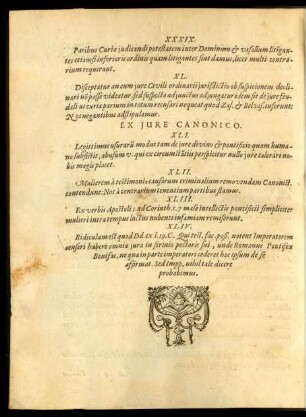 XXXIX.
Paribus Curiæ judicandi potestatem inter Dominum & vasallum litigan-
tes etsi inst inferioris ordinis quam litigantes sint damus, licet multi contra-
rium requirant.
XL.
Disceptatur an cum jure Civili ordinarii jurisdictio ob suspitionem decli-
nari nō posse videatur sed suspecto adjunctus adjungatur idem sit de jure feu-
dali ut curia parium in totum recusari nequeat quod Zas. & Belvis. inserunt:
Nos negantibus adstipulamur.
EX JURE CANONICO.
XLI.
Legitimus usurarū modus tam de jure divino & pontificio quam huma-
no subsistit, abusum v. qui ex circumstātiis perspicitur nullo jure tolerari no-
bis magis placet.
XLII.
Mulierem à testimonio causarum criminalium removendam Canonist.
contendunt: Nos à contrarium tenentium partibus stamus.
XLIII.
Ex verbis Apostoli: ad Corinth. c. 7 male intellectis pontificii simpliciter
mulieri intra tempus luctus nubenti infamiam remiserunt.
XLIV.
Ridiculum est quod Dd. ex l. 19. C. Qui test. fac. poss. notent Imperatorem
censeri habere omnia jura in scrinio pectoris sui, unde Romanus Pontifex
Bonifac. ne qua in parte imperatori cederet hoc ipsum de se
affirmat. Sed Impp. nihil tale dicere
probabimus.